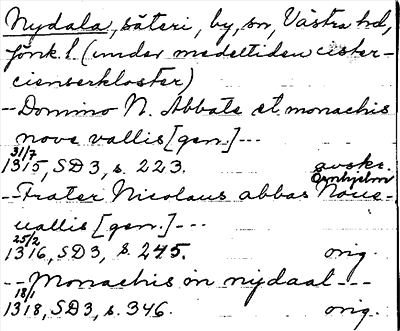 Nydala, säteri, by, sn, Västra hd,
Jönk. l. (under medeltiden cister-
cienserkloster)
-- Domino N. Abbate et monachis
nove vallis [gen.] ---
31/7
1315, SD3, s. 223. avskr.
Örnhjelm
-- Frater Nicolaus abbas Noue-
uallis [gen.] ---
25/2
1316, SD3, s. 245. orig.
-- Monachis in nydaal ---
18/1
1318, SD3, s. 346. orig.